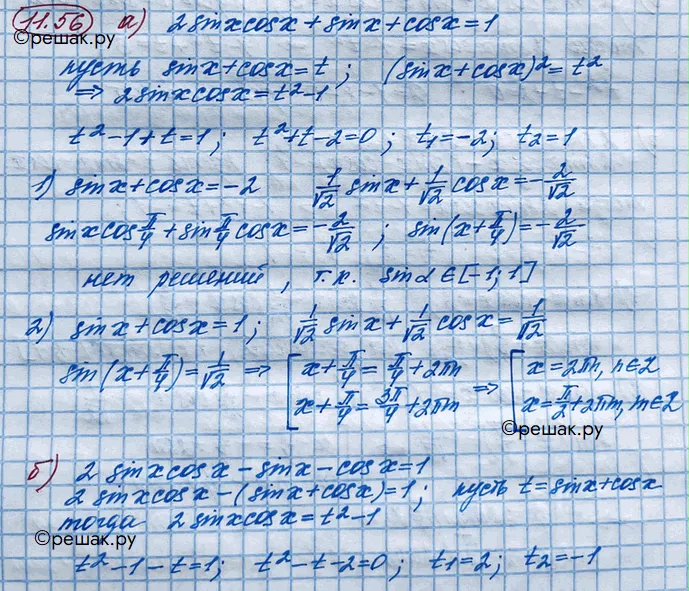 11.56 а) 2sinxcosx + sinx + cosx = 1
©решак.ру
пусть sinx + cosx = t ; (sinx + cosx)² = t²
⇒ 2sinxcosx = t² - 1
t² - 1 + t = 1 ; t² + t - 2 = 0 ; t₁ = -2 ; t₂ = 1
1) sinx + cosx = -2 1/√2 sinx + 1/√2 cosx = -2/√2
sinx cos π/4 + sin π/4 cosx = -2/√2 ; sin(x + π/4) = -2/√2
нет решений , т.к. sinα ∈ [-1; 1]
2) sinx + cosx = 1 ; 1/√2 sinx + 1/√2 cosx = 1/√2
sin(x + π/4) = 1/√2 ⇒ [ x + π/4 = π/4 + 2πn ⇒ [ x = 2πn, n∈Z
x + π/4 = 3π/4 + 2πm x = π/2 + 2πm, m∈Z
©решак.ру
б) 2 sinxcosx - sinx - cosx = 1
2 sinxcosx - (sinx + cosx) = 1 ; пусть t = sinx + cosx
тогда 2 sinxcosx = t² - 1
©решак.ру
t² - 1 - t = 1 ; t² - t - 2 = 0 ; t₁ = 2 ; t₂ = -1